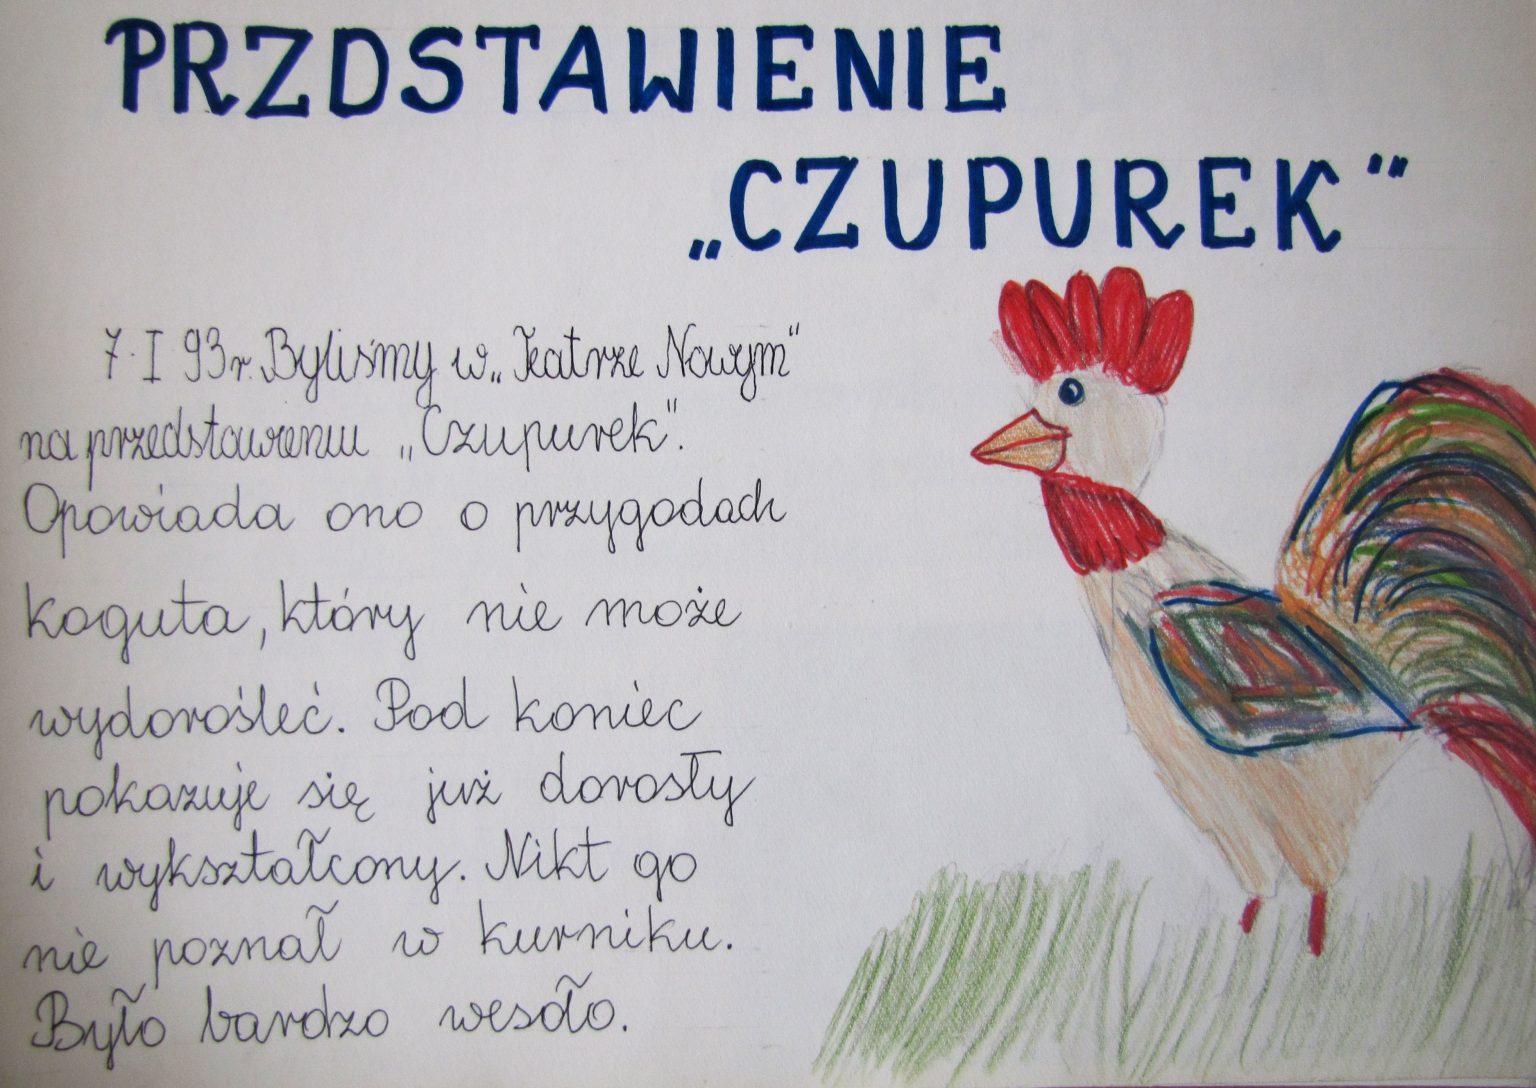 PRZDSTAWIENIE
„CZUPUREK"
7.I 93r. Byliśmy w „Teatrze Nowym"
na przedstawieniu „Czupurek".
Opowiada ono o przygodach
koguta, który nie może
wydorośleć. Pod koniec
pokazuje się już dorosły
i wykształcony. Nikt go
nie poznał w kurniku.
Było bardzo wesoło.